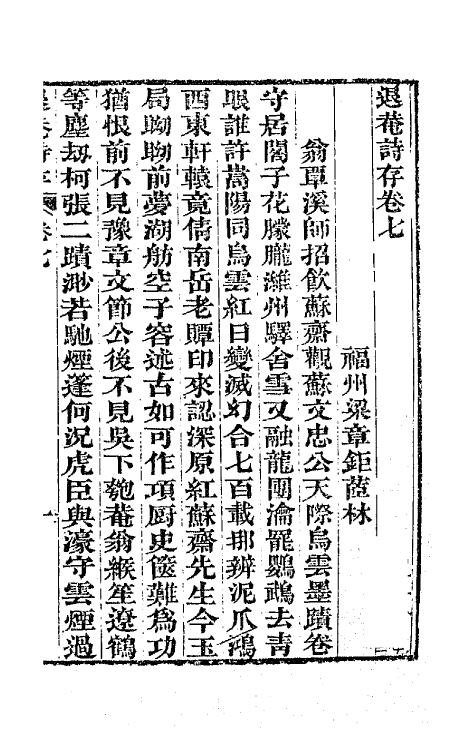 退菴詩存卷七
福州梁章鉅茝林
翁覃溪師招飲蘇齋觀蘇文忠公天際烏雲墨蹟卷
守居閣子花朦朧濰州驛舍雪又融龍團瀹罷鸚鵡去青
眼誰許嵩陽同烏雲紅日變滅幻合七百載那辨泥爪鴻
西東軒轅竟倩南岳老贉印來認深原紅蘇齋先生今玉
局眑眑前夢湖舫空子容述古如可作項廚史篋難爲功
猶恨前不見豫章文節公後不見吳下匏菴翁緱笙遼鶴
等塵刼柯張二蹟渺若馳煙蓬何況虎臣與濠守雲煙過
退菴詩存
卷七
一